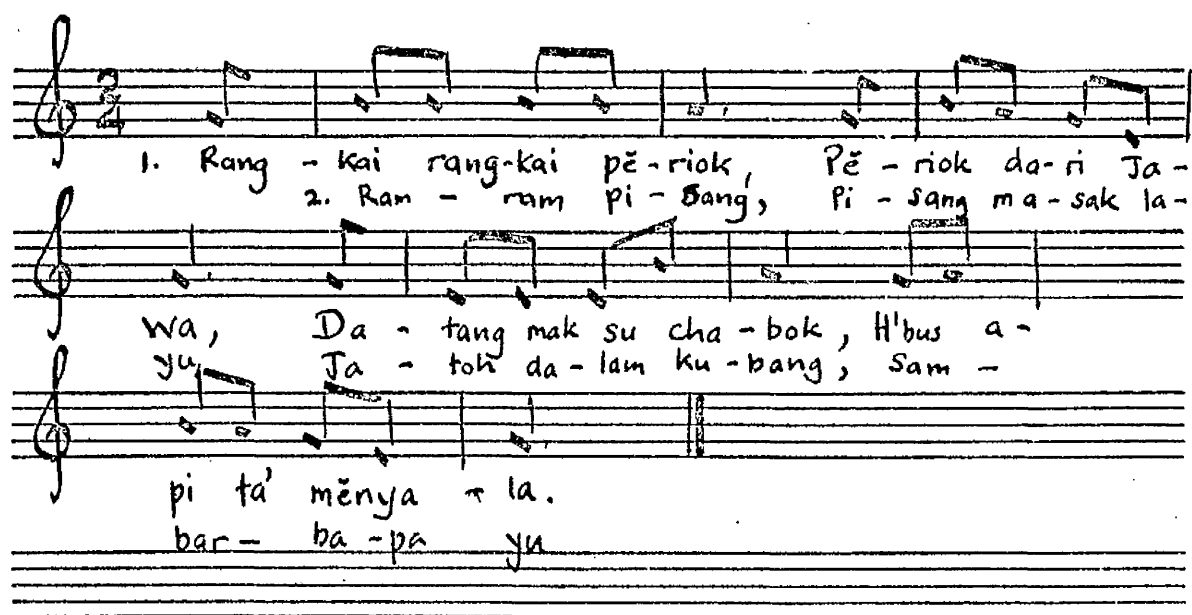 2/4
1. Rang - kai rang-kai pĕ-riok, Pĕ - riok da-ri Ja-
2. Ram - ram pi - sang, Pi - sang ma-sak la-
Wa, Da - tang mak su cha-bok, H'bus a-
yu, Ja - toh da-lam ku-bang, Sam -
pi ta' mĕnya - la.
bar - ba-pa yu